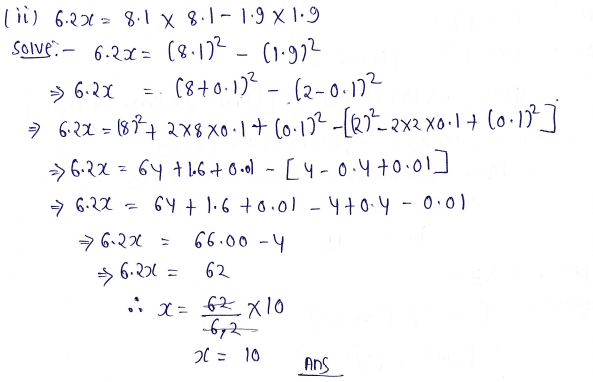 (ii) 6.2x = 8.1 × 8.1 - 1.9 × 1.9
Solve:- 6.2x = (8.1)² - (1.9)²
⇒ 6.2x = (8+0.1)² - (2-0.1)²
⇒ 6.2x = (8)² + 2×8×0.1 + (0.1)² - [(2)² - 2×2×0.1 + (0.1)²]
⇒ 6.2x = 64 + 1.6 + 0.01 - [4 - 0.4 + 0.01]
⇒ 6.2x = 64 + 1.6 + 0.01 - 4 + 0.4 - 0.01
⇒ 6.2x = 66.00 - 4
⇒ 6.2x = 62
∴ x = 62/6,2 × 10
x = 10 Ans